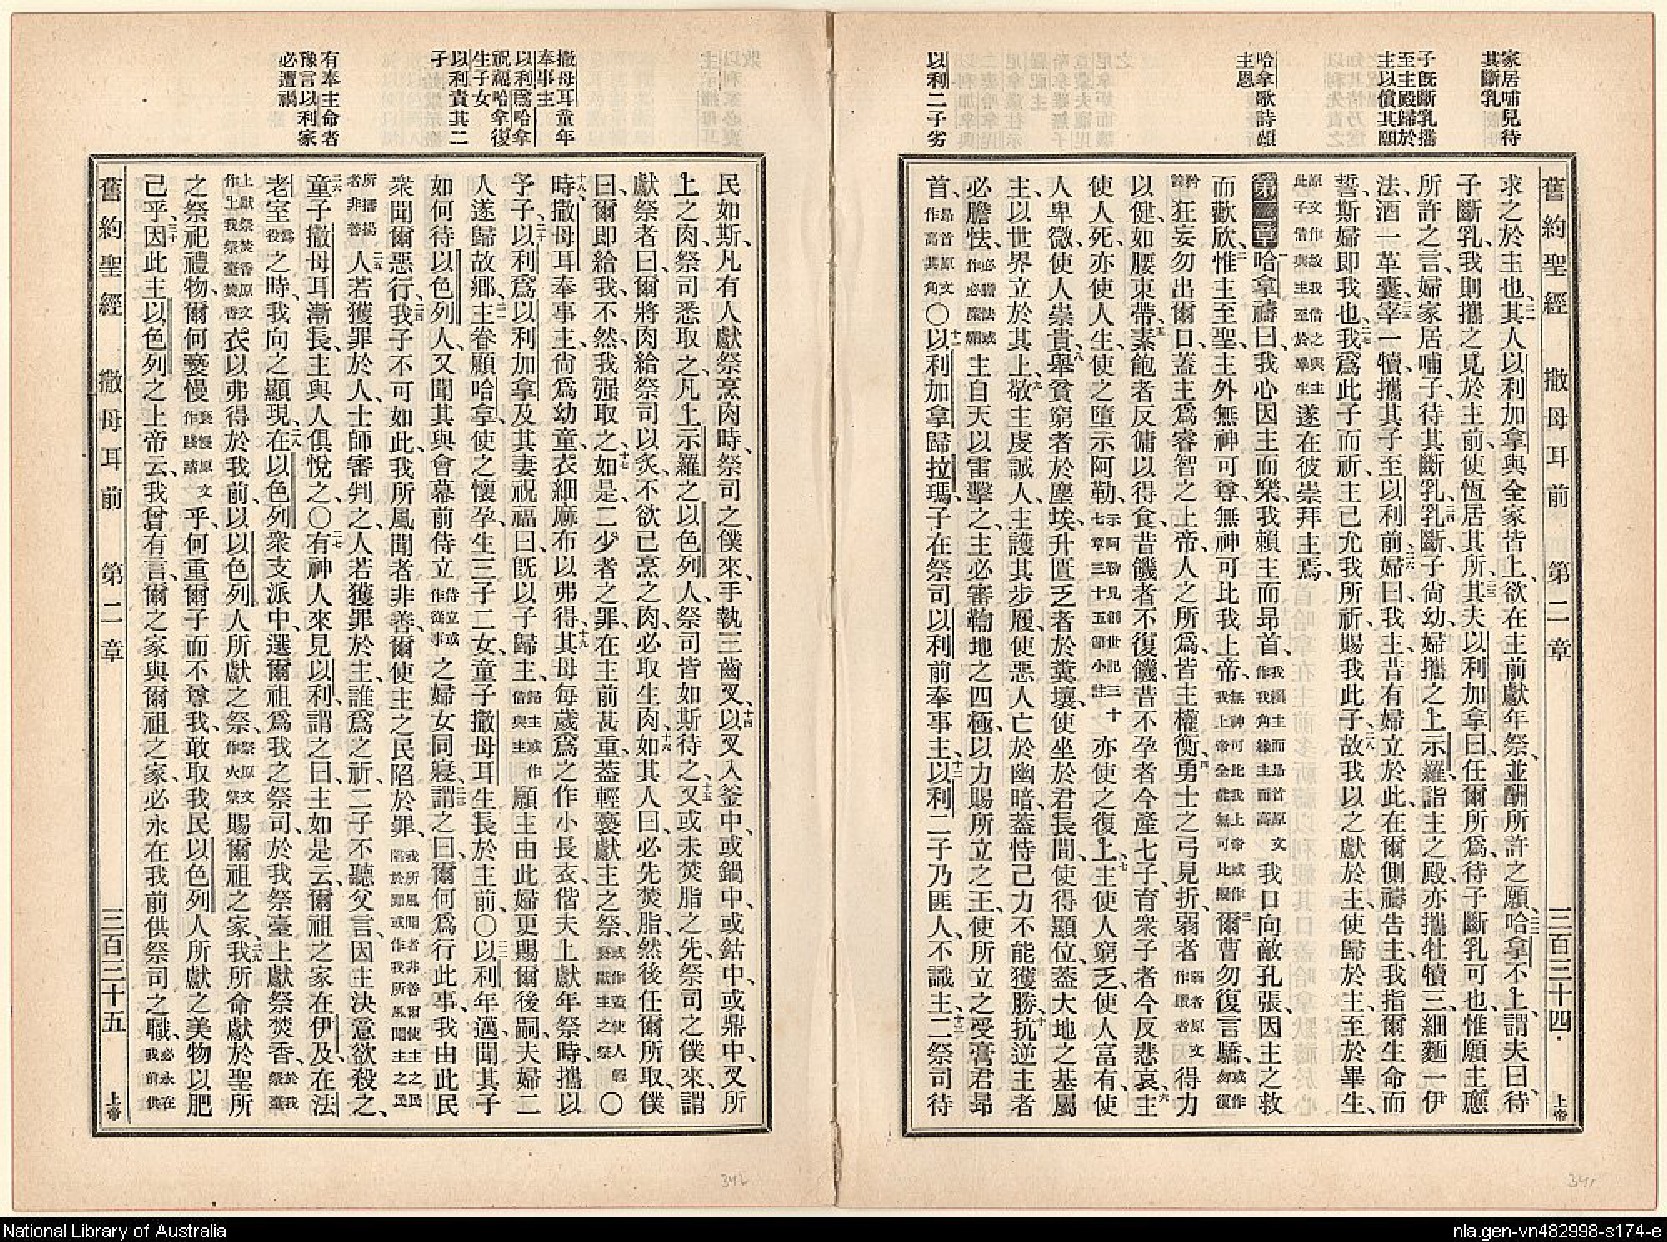 家居哺兒待
其斷乳
子既斷乳攜
至主殿歸於
主以償其願
哈拿歌詩頌
主恩
以利二子劣
舊約聖經 撒母耳前 第二章 三百三十四 上帝
求之於主也、其人以利加拿與全家皆上、欲在主前獻年祭、並酬所許之願、哈拿不上、謂夫曰、待
子斷乳、我則攜之覓於主前、使恆居其所、其夫以利加拿曰、任爾所爲、待子斷乳可也、惟願主應
所許之言、婦家居哺子、待其斷乳、乳斷、子尙幼、婦攜之上示羅、詣主之殿、亦攜牡犢三、細麵一伊
法、酒一革囊、宰一犢、攜其子至以利前、婦曰、我主、昔有婦立於此、在爾側禱告主、我指爾生命而
誓、斯婦卽我也、我爲此子而祈、主已允我所祈、賜我此子、故我以之獻於主、使歸於主、至於畢生、
原文作故我借之與主此子借與主至於畢生 遂在彼崇拜主焉、
第二章 哈拿禱曰、我心因主而樂、我賴主而昂首、我賴主而昂首原文作我角緣主而高 我口向敵孔張、因主之救
而歡欣、惟主至聖、主外無神可尊、無神可比我上帝、無神可比我上帝或作我上帝全能無可比擬 爾曹勿復言驕、或作勿復
矜誇 狂妄勿出爾口、蓋主爲睿智之上帝、人之所爲、皆主權衡、勇士之弓見折、弱者弱者原文作躓者 得力
以健如腰束帶、素飽者反傭以得食、昔饑者不復饑、昔不孕者今產七子、育衆子者今反悲哀、主
使人死、亦使人生、使之墮示阿勒、示阿勒見創世記三十七章三十五節小註 亦使之復上、主使人窮乏、使人富有、使
人卑微、使人崇貴、舉貧窮者於塵埃、升匱乏者於糞壤、使坐於君長間、使得顯位、蓋大地之基屬
主、以世界立於其上、敬主虔誠人、主護其步履、使惡人亡於幽暗、蓋恃己力不能獲勝、抗逆主者
必膽怯、 主自天以雷擊之、主必審鞫地之四極、以力賜所立之王、使所立之受膏君昂
首、昂首原文作高其角 〇以利加拿歸拉瑪、子在祭司以利前奉事主、以利二子乃匪人、不識主、二祭司待
撒母耳童年
奉事主
以利爲哈拿
祝福哈拿復
生子女
以利責其二
子
有奉主命者
豫言以利家
必遭禍
民如斯、凡有人獻祭、烹肉時、祭司之僕來、手執三齒叉、以叉入釜中、或鍋中、或鈷中、或鼎中、叉所
上之肉、祭司悉取之、凡上示羅之以色列人、祭司皆如斯待之、又或未焚脂之先、祭司之僕來、謂
獻祭者曰、爾將肉給祭司以炙、不欲已烹之肉、必取生肉、如其人曰、必先焚脂、然後任爾所取、僕
曰、爾卽給我、不然、我强取之、如是、二少者之罪、在主前甚重、蓋輕褻獻主之祭、 〇
時、撒母耳奉事主、尙爲幼童、衣細麻布以弗得、其母每歲爲之作小長衣、偕夫上獻年祭時、攜以
予子、以利爲以利加拿及其妻祝福曰、旣以子歸主、歸主或作借與主 願主由此婦更賜爾後嗣、夫婦二
人遂歸故鄉、主眷顧哈拿、使之懷孕、生三子二女、童子撒母耳生長於主前、〇以利年邁、聞其子
如何待以色列人、又聞其與會幕前侍立侍立或作從事 之婦女同寢、謂之曰、爾何爲行此事、我由此民
衆聞爾惡行、我子不可如此、我所風聞者非善、爾使主之民陷於罪、
人若獲罪於人、士師審判之、人若獲罪於主、誰爲之祈、二子不聽父言、因主決意欲殺之、
童子撒母耳漸長、主與人俱悅之、〇有神人來見以利、謂之曰、主如是云、爾祖之家在伊及、在法
老室爲役 之時、我向之顯現、在以色列衆支派中、選爾祖爲我之祭司、於我祭臺上獻祭焚香、於我祭臺
上獻祭焚香原文作上我祭臺焚香 衣以弗得於我前、以以色列人所獻之祭、祭原文作火祭 賜爾祖之家、我所命獻於聖所
之祭祀禮物、爾何褻慢褻慢原文作踐踏 乎、何重爾子而不尊我、敢取我民以色列人所獻之美物以肥
己乎、因此主以色列之上帝云、我曾有言、爾之家與爾祖之家、必永在我前供祭司之職、必永在我前供
舊約聖經 撒母耳前 第二章 三百三十五 上帝
National Library of Australia
nla.gen-vn482998-s174-e